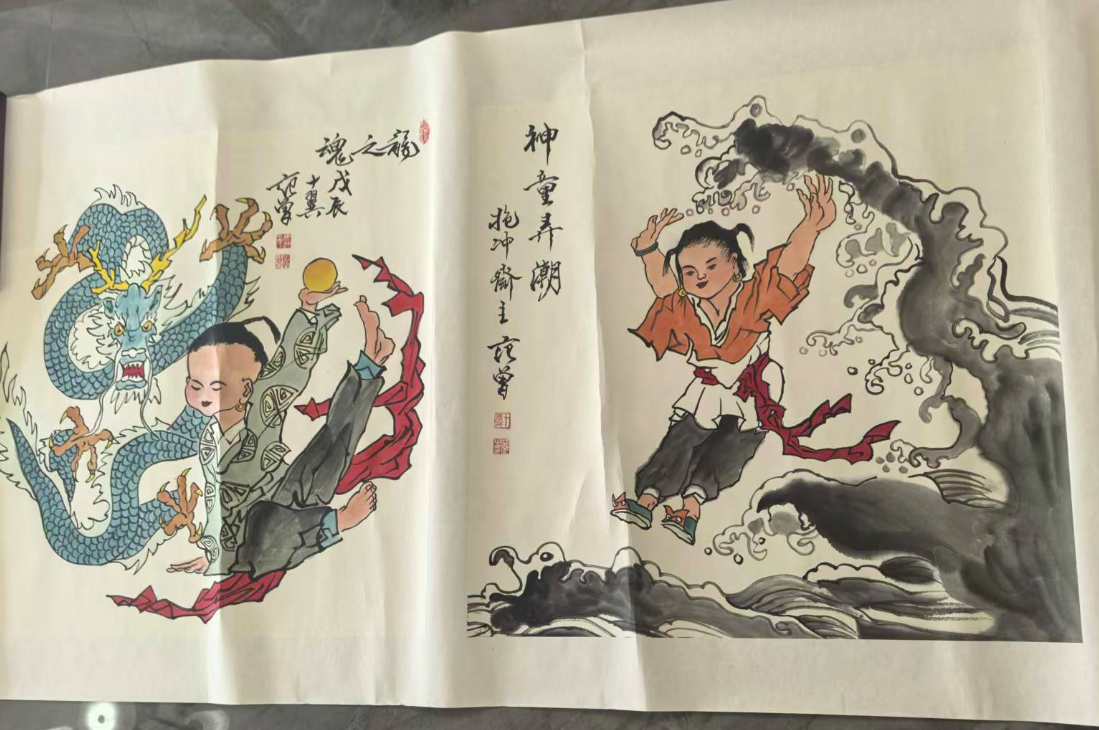 龍之魂
戊辰
十翼
范曾
神童弄潮
抱冲齋主范曾